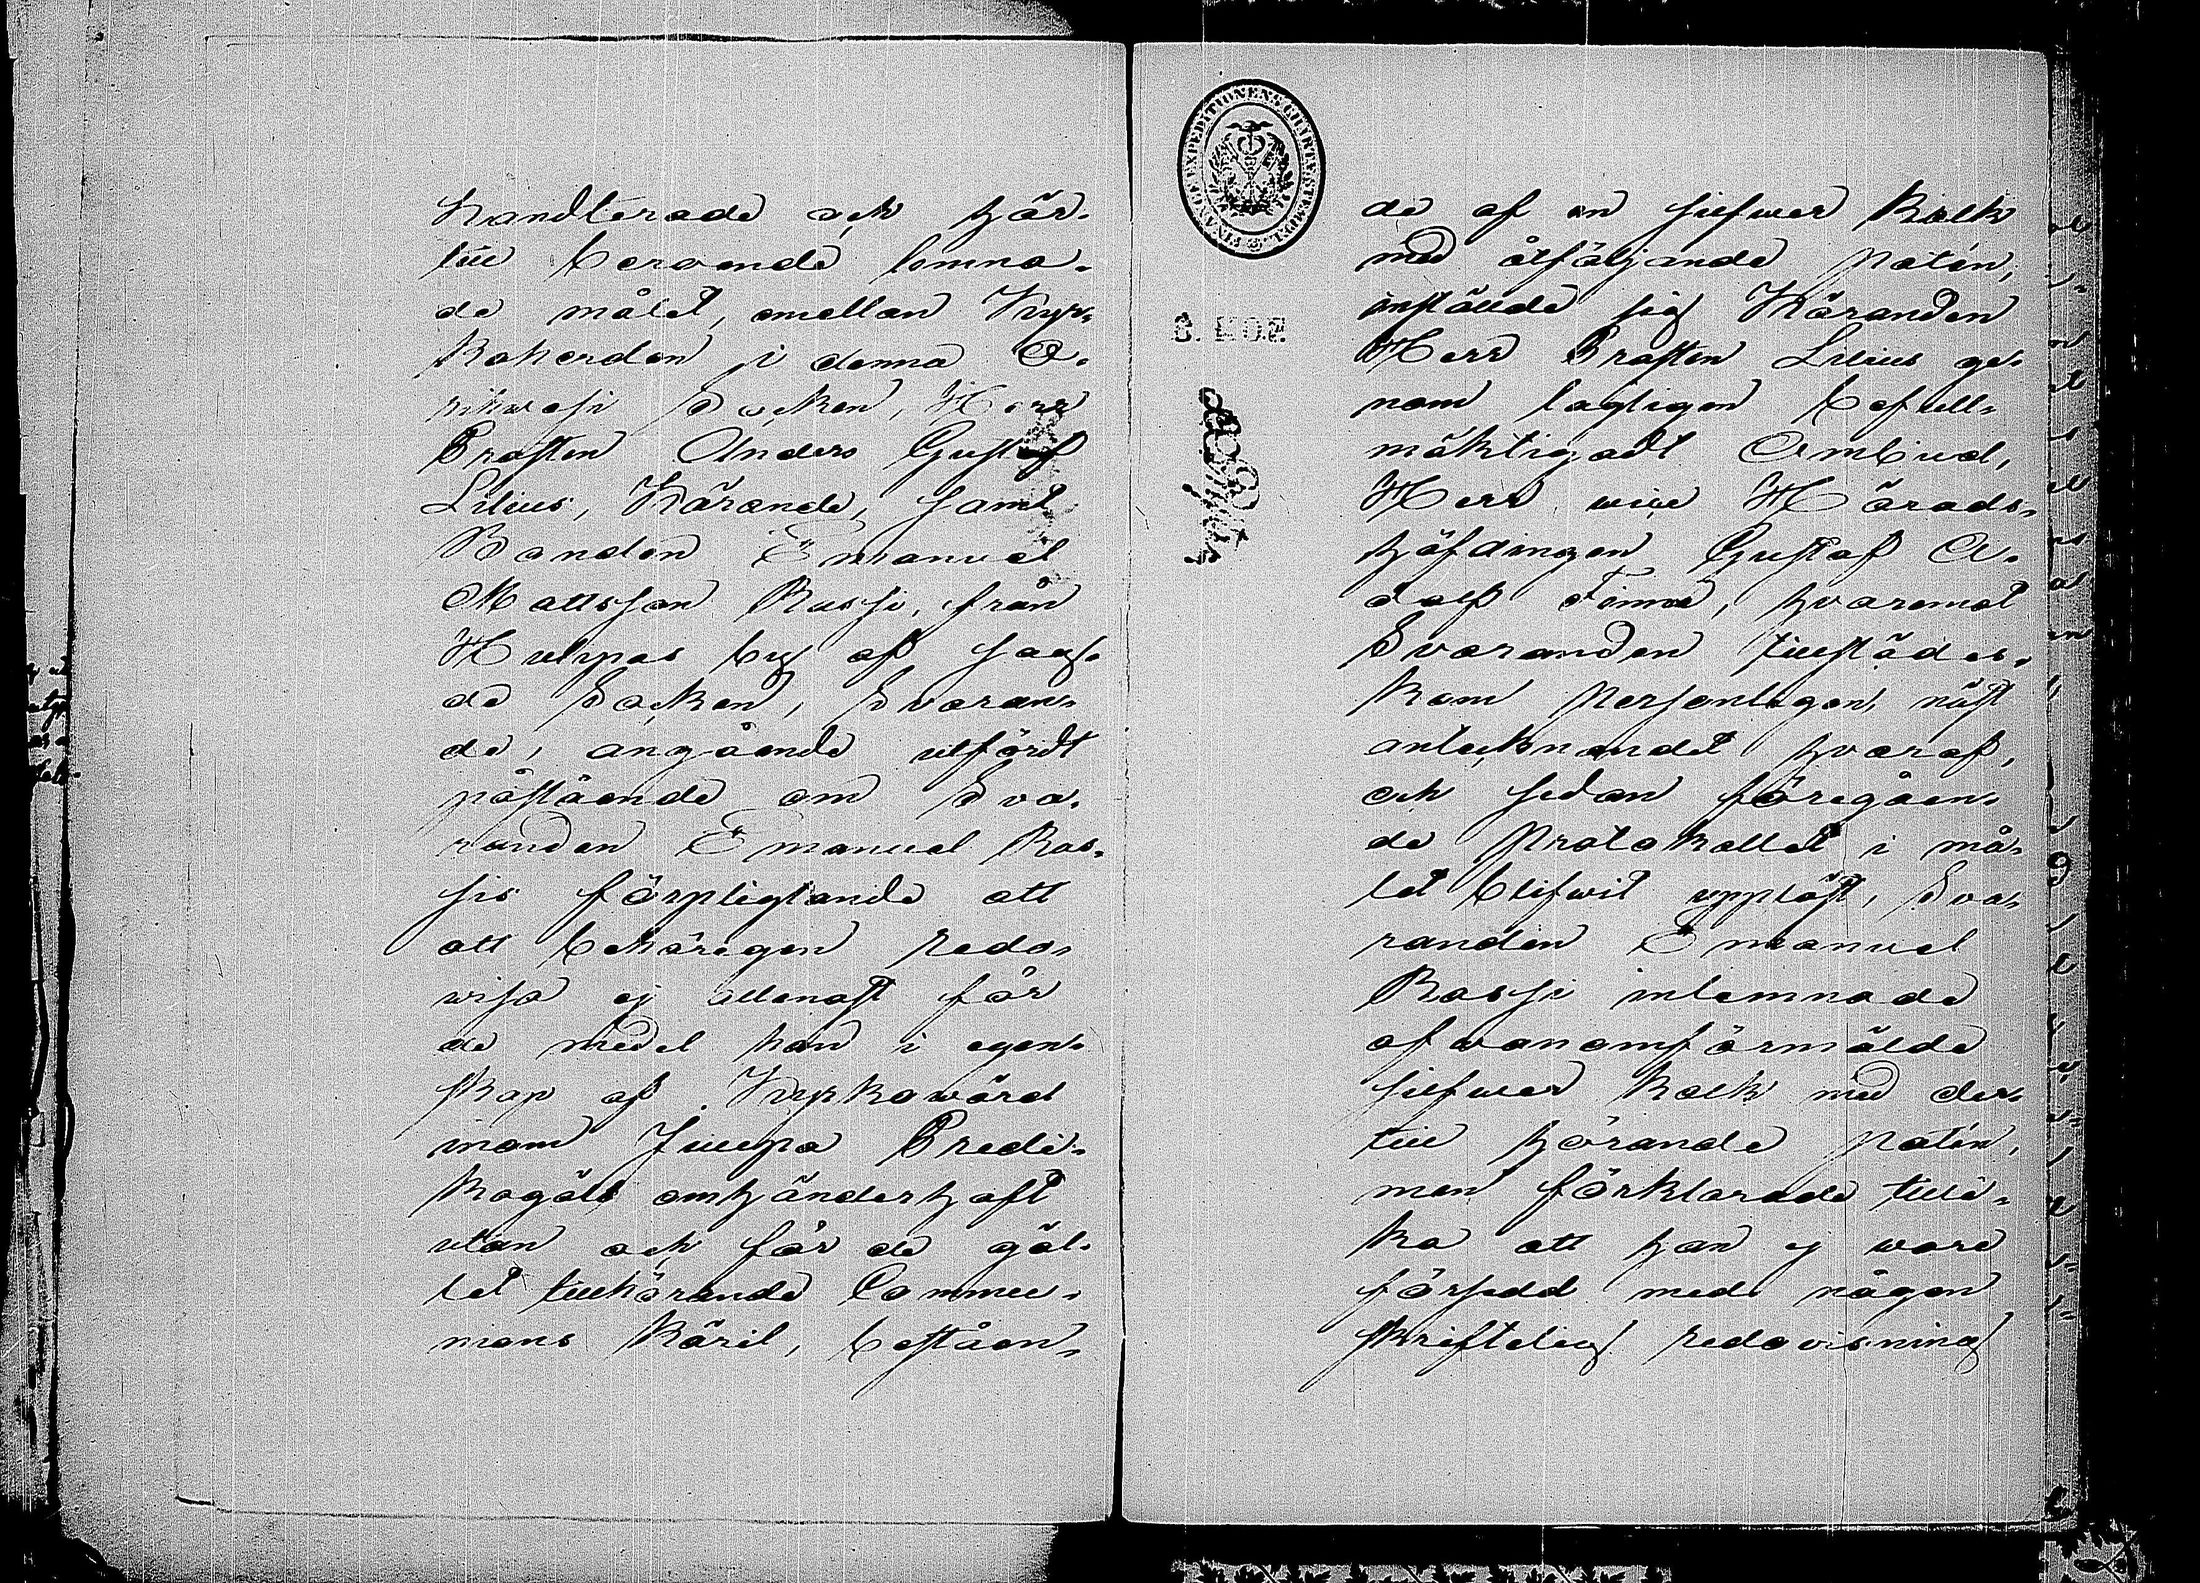 handterade och här-
till beroende lemna-
de målet, emellan Kyr-
koherden i denna O-
rihvesi Socken, Herr
Prosten Anders Gustaf
Lilius, Kärande, samt
Bonden Emanuel
Mattsson Rassi, från
Hulpas by af sag-
de Socken, Svaran-
de, angående utfördt
påstående om Sva-
randen Emanuel Ras-
sis förpligtande att
att behörigen redo-
visa ej allenast för
de medel han i egen-
skap af Kyrkovärd
inom Juupa Predi-
kogäld omhänderhaft
utan ock för de gäl-
let tillhörande Commu-
nions Käril, beståen-
FINANCE EXPEDITIONENS CHARTÆ STEMPEL
de af en silfwer Kalk
med åtföljande patén,
instälde sig Käranden
Herr Prosten Lilius ge-
nom lagligen befull-
mäktigadt Ombud,
Herr vice Härads-
höfdingen Gustaf A-
dolf, hvaremot
Svaranden tillstädes-
kom personligen, näst
antecknandet hvaraf,
och sedan föregåen-
de Protokollet i må-
let blifwit uppläst, Sva-
randen Emanuel
Rassi inlemnade
ofvanomförmälde
silfwer Kalk med der-
till hörande patén,
men förklarade tilli-
ka att han ej vore
försedd med någon
skriftelig redovisning